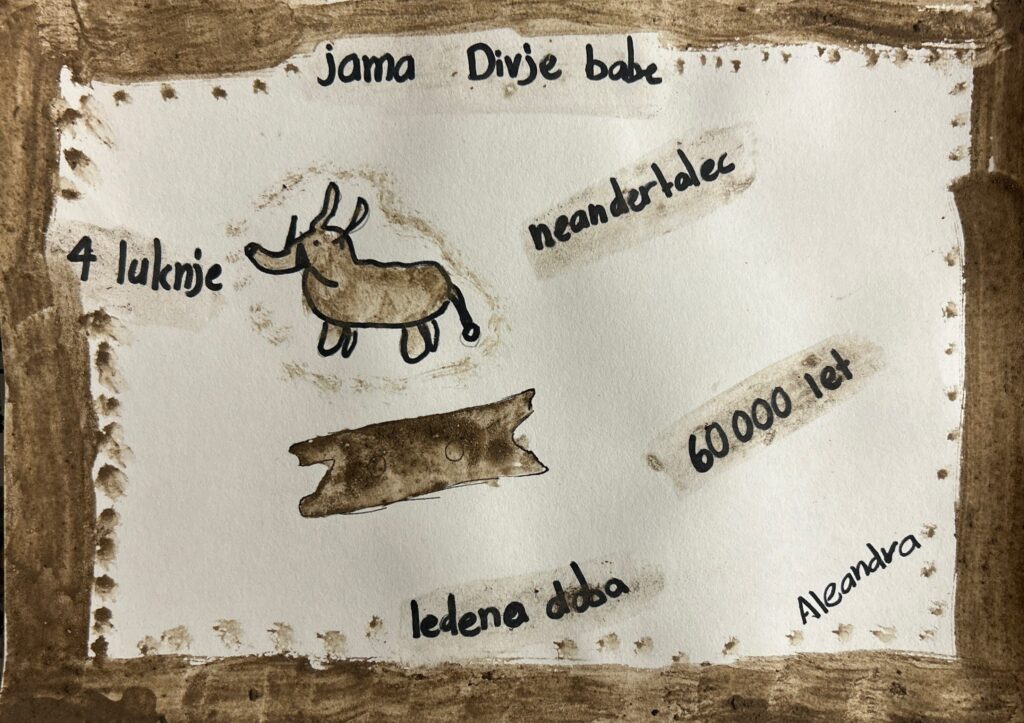 jama Divje babe
neandertalec
4 luknje
60000 let
ledena doba
Aleandra